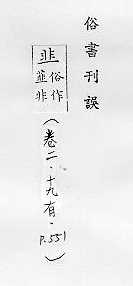 俗書刊誤
韭
俗作
韮非
(卷二·十九有·P.551)